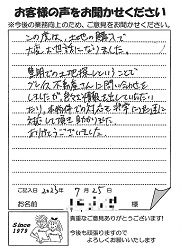 お客様の声をお聞かせください
※今後の業務向上のため、ご意見をお聞かせください。
この度は、土地の購入で
大変お世話になりました。
短期での土地探しということで
プレイス不動産さんに問い合わせを
しましたが、色々と情報を出していただい
たり、本物件での対応も非常に迅速に
対応して頂き助かりました。
ありがとうございました。
ご記入日 2023年 7月 25日
お名前 様
貴重なご意見ありがとうございます!
今後も頑張りますので
よろしくお願いいたします
Since
1975